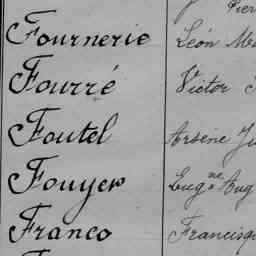 Fournerie Léon
Fourré Victor
Foutel Arsène
Fouyer Eugne Aug
Franco Francisq